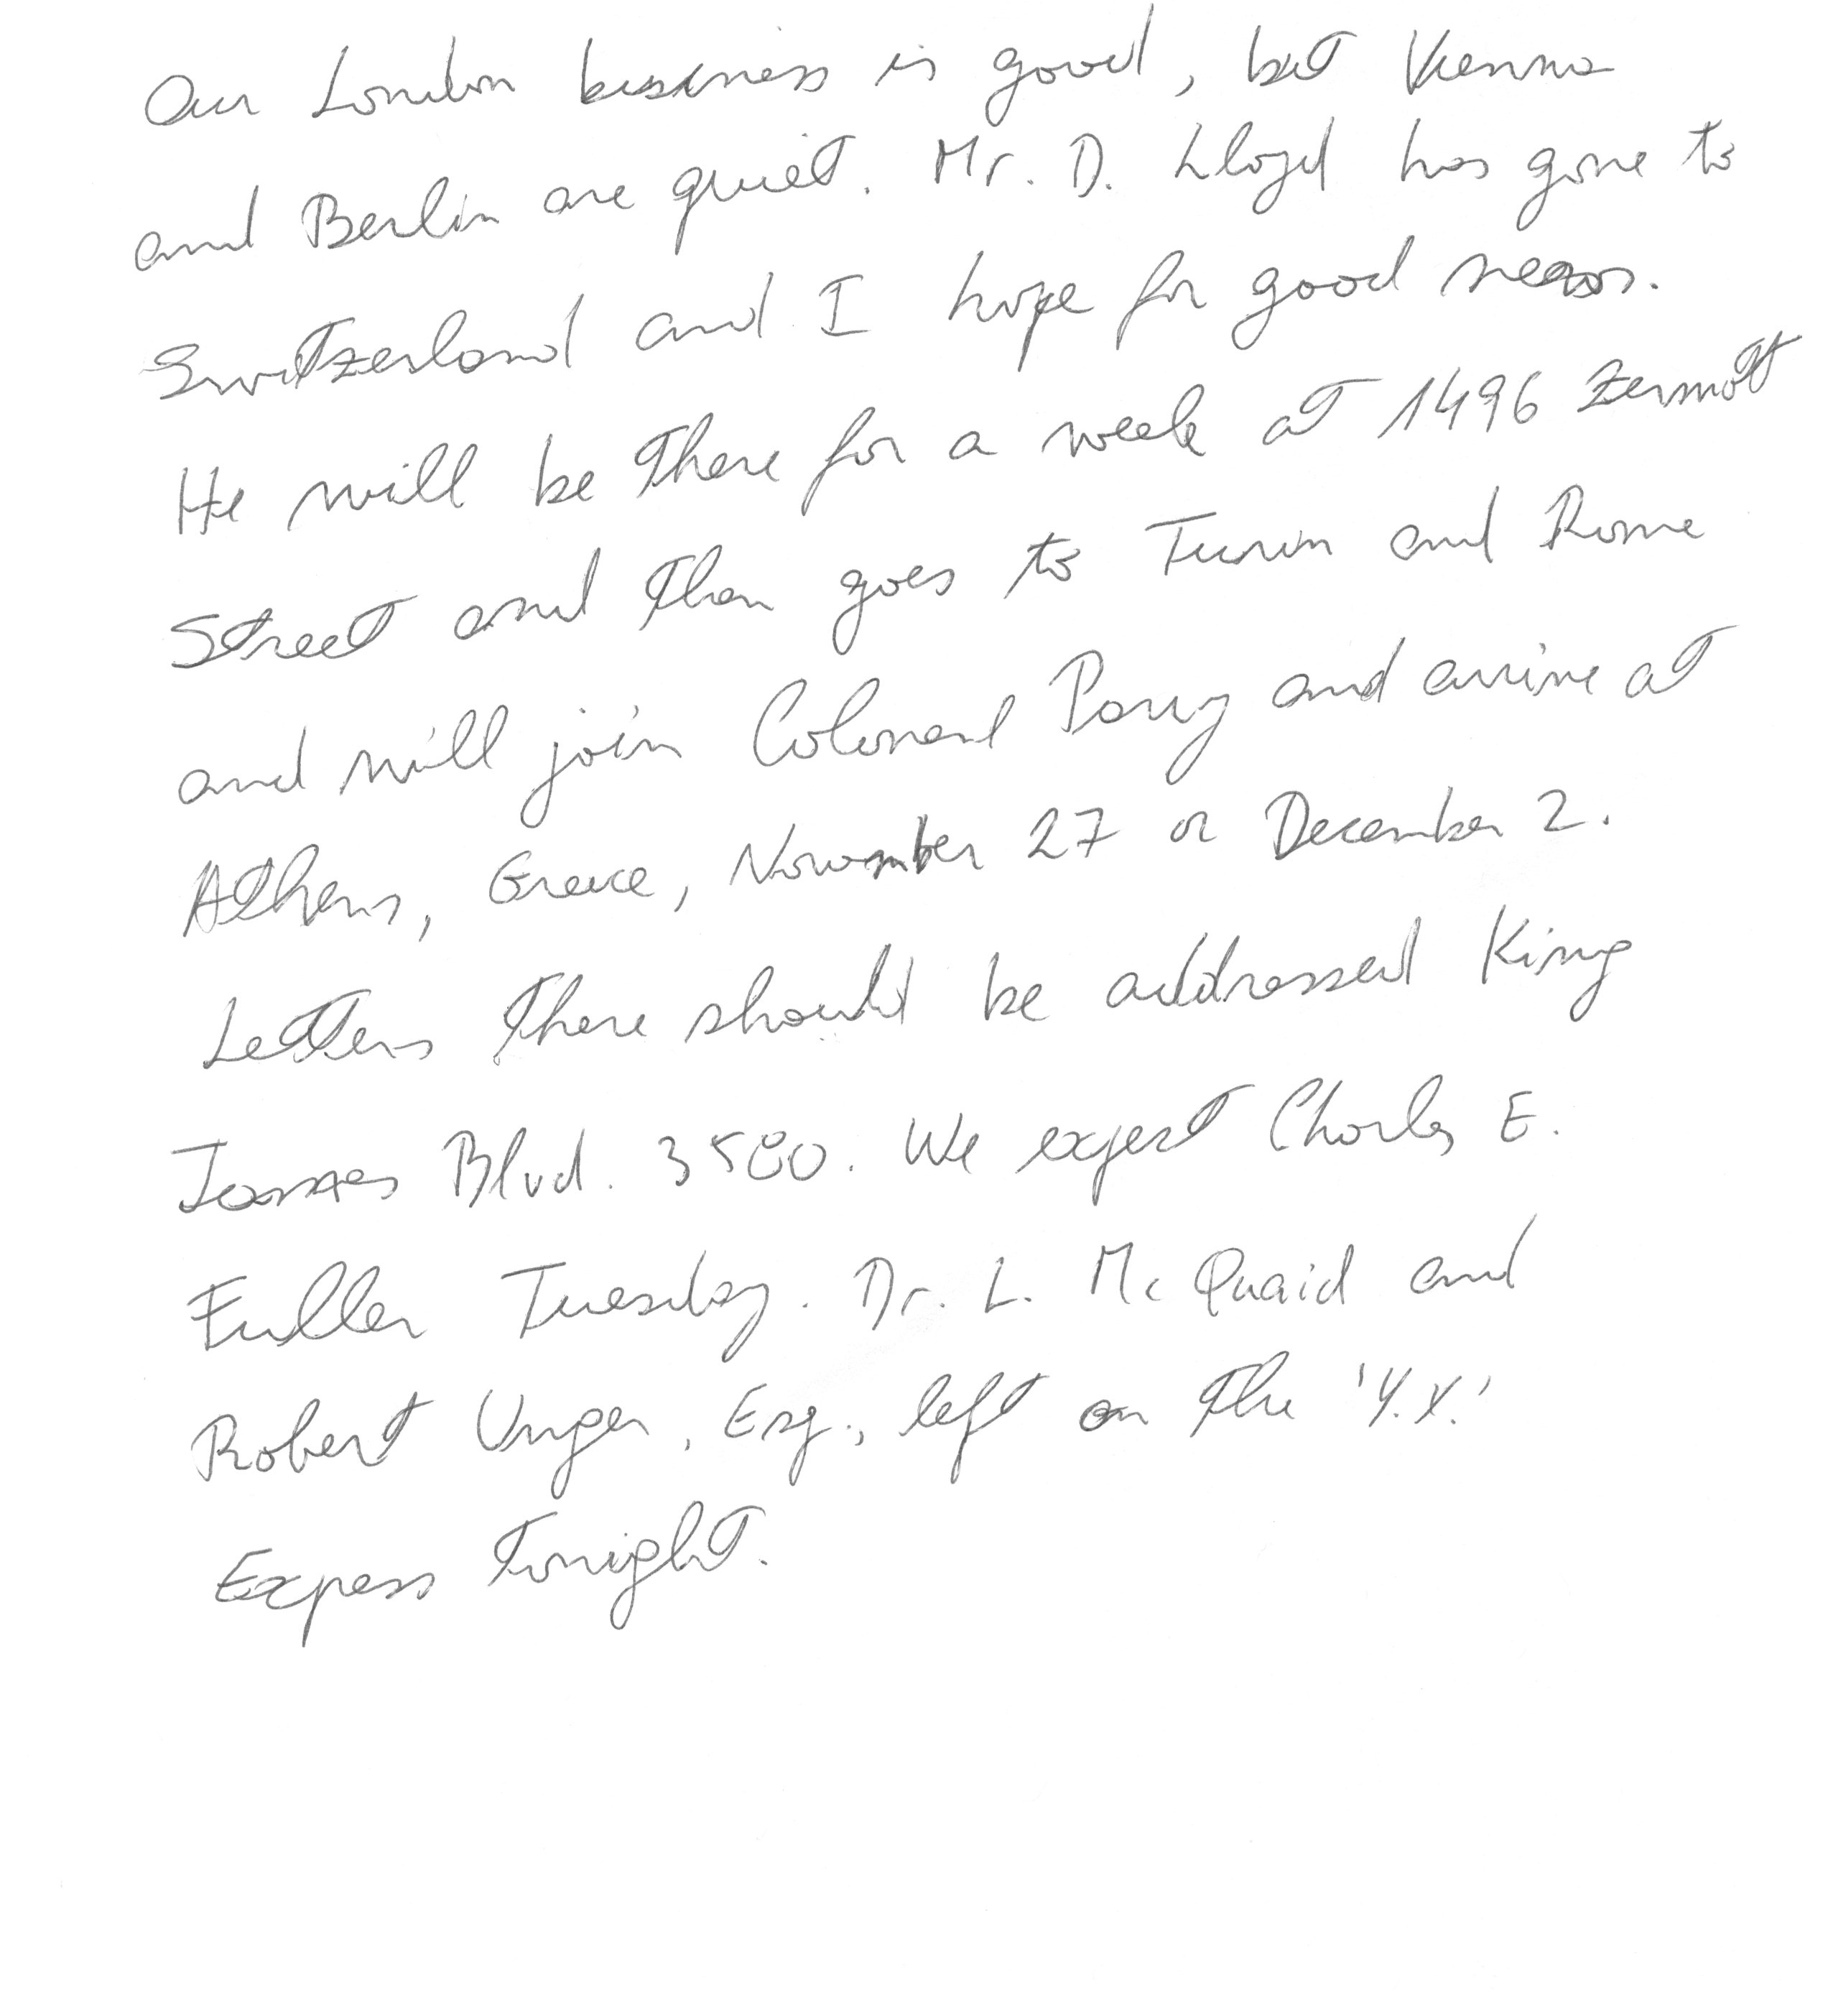 Our London business is good, but Vienna
and Berlin are quiet. Mr. D. Lloyd has gone to
Switzerland and I hope for good news.
He will be there for a week at 1496 Zermott
Street and then goes to Turin and Rome
and will join Colonel Parry and arrive at
Athens, Greece, November 27 or December 2.
Letters there should be addressed King
James Blvd. 3580. We expect Charles E.
Fuller Tuesday. Dr. L. Mc Quaid and
Robert Unger, Esq., left on the 'Y.X.'
Express tonight.